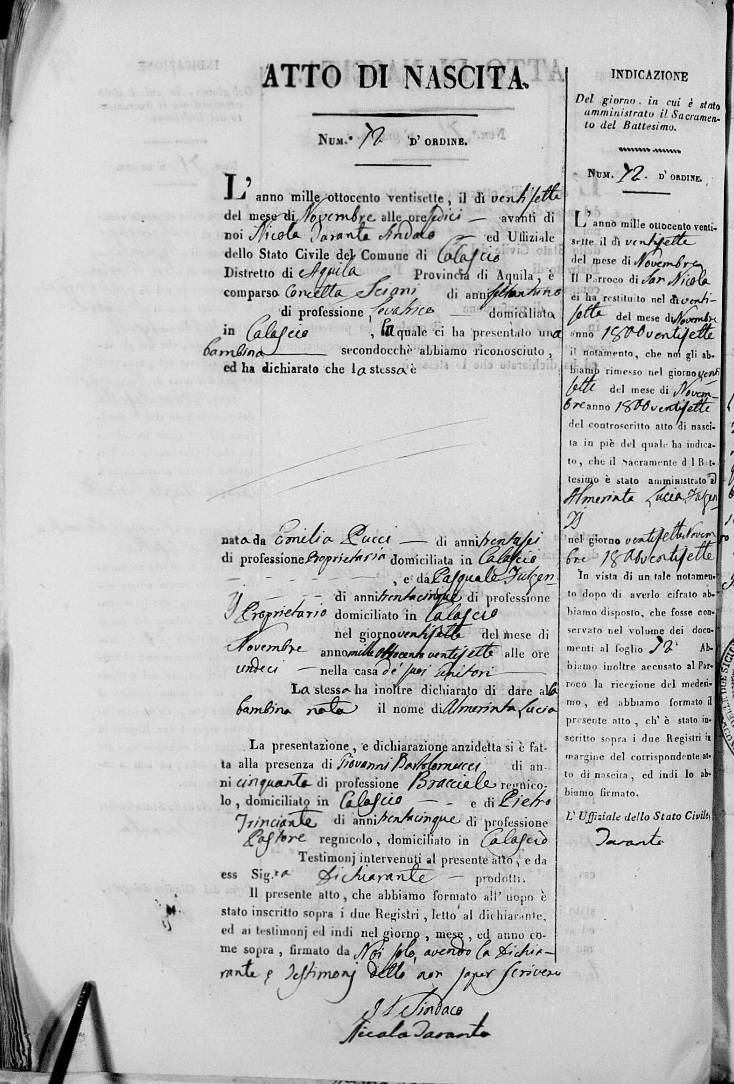 ATTO DI NASCITA.
NUM.° 72 D' ORDINE.
L' anno mille ottocento ventisette, il di ventisette
del mese di Novembre alle ore sedici — avanti di
noi Nicola Taranta Sindaco — ed Uffiziale
dello Stato Civile del Comune di Calascio
Distretto di Aquila Provincia di Aquila, è
comparsa Concetta Sciani di anni settantuno
di professione, Levatrice — domiciliata
in Calascio , la quale ci ha presentato una
bambina secondocchè abbiamo riconosciuto,
ed ha dichiarato che la stessa è
nata da Emilia Pucci — di anni trentasei
di professione Proprietaria domiciliata in Calascio
, e da Pasquale Fulgen
zj di anni trentacinque di professione
Proprietario domiciliato in Calascio
nel giorno ventisette del mese di
Novembre anno mille ottocento ventisette alle ore
undeci — nella casa de' suoi Genitori
La stessa ha inoltre dichiarato di dare alla
bambina nata il nome di Almerinta Lucia
La presentazione, e dichiarazione anzidetta si è fat-
ta alla presenza di Giovanni Bartolomucci di an-
ni cinquanta di professione Bracciale regnico-
lo, domiciliato in Calascio — e di Pietro
Trinciante di anni trentacinque di professione
Pastore regnicolo, domiciliato in Calascio
Testimonj intervenuti al presente atto, e da
ess Sig.ra Dichiarante — prodotti.
Il presente atto, che abbiamo formato all' uopo è
stato inscritto sopra i due Registri, letto al dichiarante,
ed ai testimonj ed indi nel giorno, mese, ed anno co-
me sopra, firmato da Noi solo, avendo la Dichia-
rante e Testimonj detto non saper scrivere
Il Sindaco
Nicola Taranta
INDICAZIONE
Del giorno, in cui è stato
amministrato il Sacramen-
to del Battesimo.
NUM. 72. D' ORDINE.
L' anno mille ottocento venti-
sette il di ventisette
del mese di Novembre
Il Parroco di San Nicola
ci ha restituito nel dì venti-
sette del mese di Novembre
anno 1800 ventisette
il notamento, che noi gli ab-
biamo rimesso nel giorno venti
sette del mese di Novem-
bre anno 1800 ventisette
del controscritto atto di nasci-
ta in piè del quale ha indica-
to, che il Sacramento d l Bat-
tesimo è stato amministrato ad
Almerinta Lucia Fulgen
zj
nel giorno ventisette Novem
bre 1800 ventisette
In vista di un tale notamen-
to dopo di averlo cifrato ab-
biamo disposto, che fosse con-
servato nel volume dei docu-
menti al foglio 72 Ab-
biamo inoltre accusato al Par-
roco la ricezione del medesi-
mo, ed abbiamo formato il
presente atto, ch' è stato in-
scritto sopra i due Registri in
margine del corrispondente at-
to di nascita, ed indi lo ab-
biamo firmato.
L' Uffiziale dello Stato Civile,
Taranta